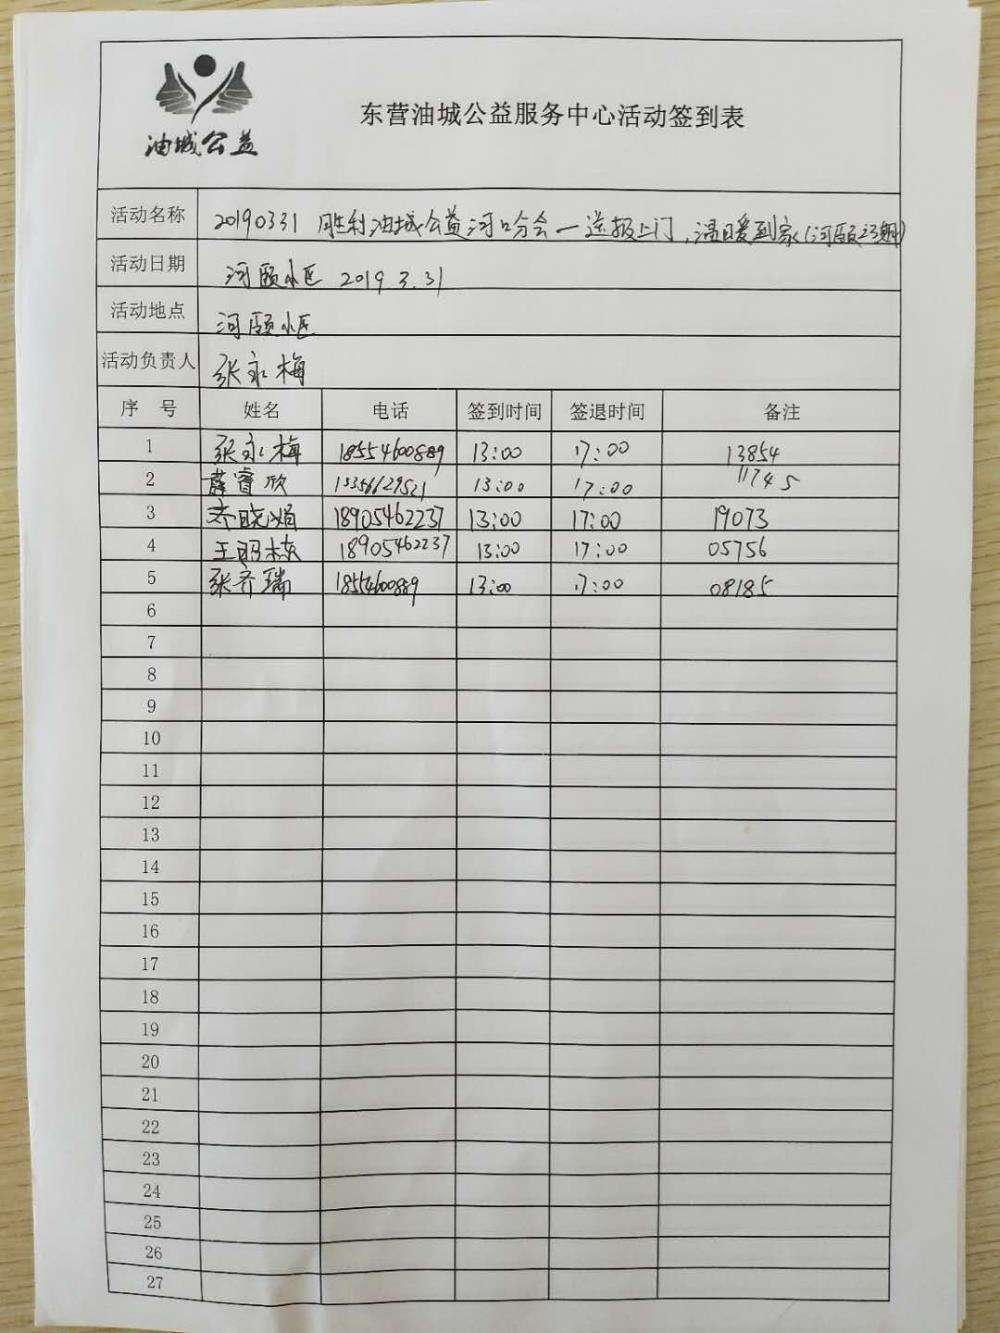 油城公益
东营油城公益服务中心活动签到表
活动名称 20190331 胜利油城公益河口分会—送报上门,温暖到家(河颐23期)
活动日期 河颐小区 2019.3.31
活动地点 河颐小区
活动负责人 张永梅
序 号 姓名 电话 签到时间 签退时间 备注
1 张永梅 18554600889 13:00 17:00 13854
2 薛睿欣 13356629521 13:00 17:00 11745
3 晓娟 18905462237 13:00 17:00 19073
4 王昭栋 18905462237 13:00 17:00 05756
5 张齐瑞 18554600889 13:00 17:00 08185
6
7
8
9
10
11
12
13
14
15
16
17
18
19
20
21
22
23
24
25
26
27